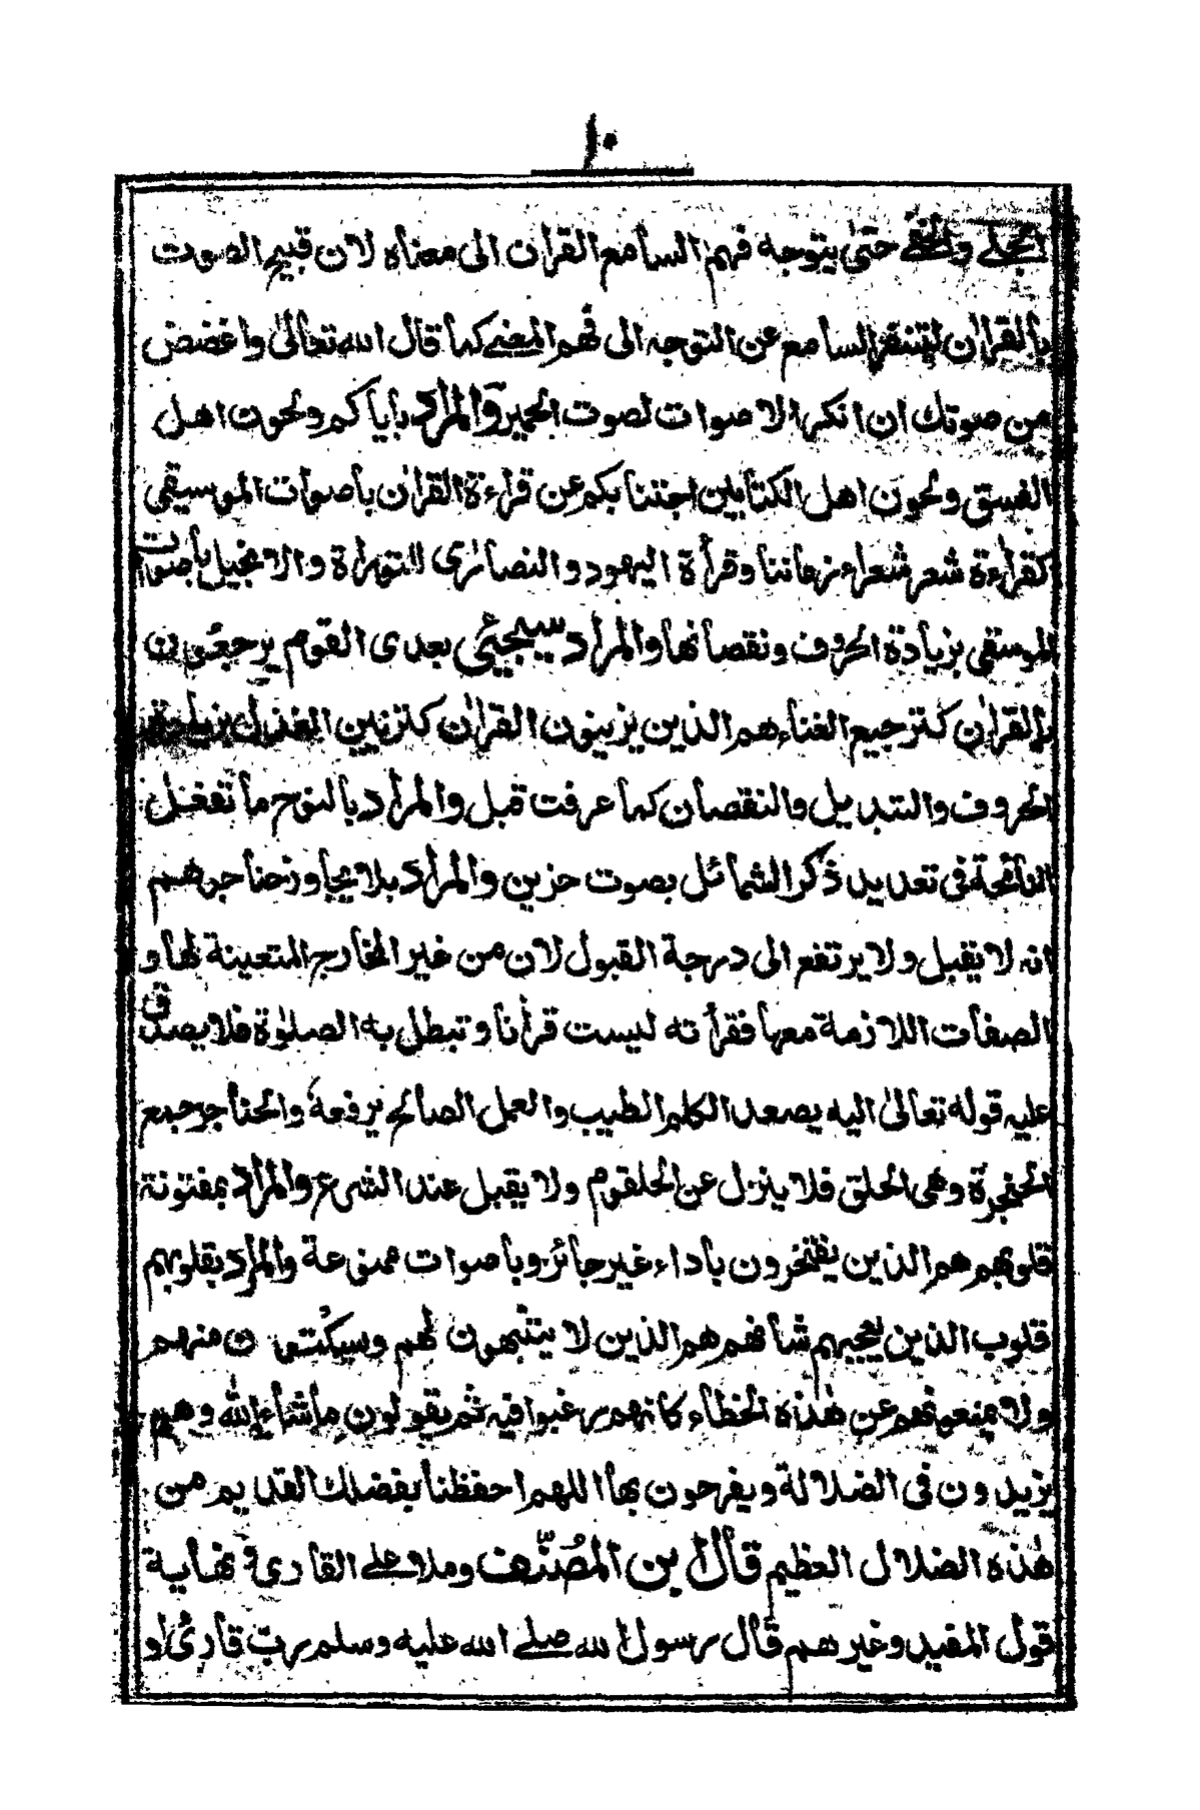 ١٠
الجلي والخفي حتى يتوجه فهم السامع القرآن الى معناه لان قبيح الصوت
بالقرآن لتنفر السامع عن التوجه الى فهم المعنى كما قال الله تعالى واغضض
من صوتك ان انكر الاصوات لصوت الحمير والمراد بإياكم ولحون اهل
الفسق ولحون اهل الكتابين اجتنابكم عن قراءة القرآن بأصوات الموسيقي
كقراءة شعر شعراء زماننا وقرأة اليهود والنصارى للتورأة والانجيل بأصوات
الموسقي بزيادة الحروف ونقصانها والمراد سيجيئ بعدى القوم يرجعون
بالقرآن كترجيع الغناء هم الذين يزينون القرآن كتزيين الغزل بزيادة
الحروف والتبديل والنقصان كما عرفت قبل والمراد بالنوح ما تفعل
النائحة في تعديد ذكر الشمائل بصوت حزين والمراد بلا يجاوز حناجرهم
انه لا يقبل ولا يرتفع الى درجة القبول لان من غير المخارج المتعينة لها و
الصفات اللازمة معها فقرأته ليست قرأنا وتبطل به الصلوٰة فلا يصدق
عليه قوله تعالىٰ اليه يصعد الكلم الطيب والعمل الصالح يرفعه والحناجر جمع
الحنجرة وهى الحلق فلا ينزل عن الحلقوم ولا يقبل عند الشرع والمراد بمفتونة
قلوبهم هم الذين يفتخرون بأداء غير جائز وبأصوات ممنوعة والمراد بقلوبهم
قلوب الذين يعجبهم شانهم هم الذين لا يتنبهون لهم وسيكتون منهم
ولا يمنعونهم عن هٰذه الخطاء كانهم رغبوا فيه ثم يقولون ما شاء الله وهم
يزيدون في الضلالة ويفرحون بها اللهم احفظنا بفضلك القديم من
هٰذه الضلال العظيم قال ابن المصنّف وملا علي القاري نهاية
قول المفيد وغيرهم قال رسول الله صلے الله عليه وسلم ربّ قارئ او